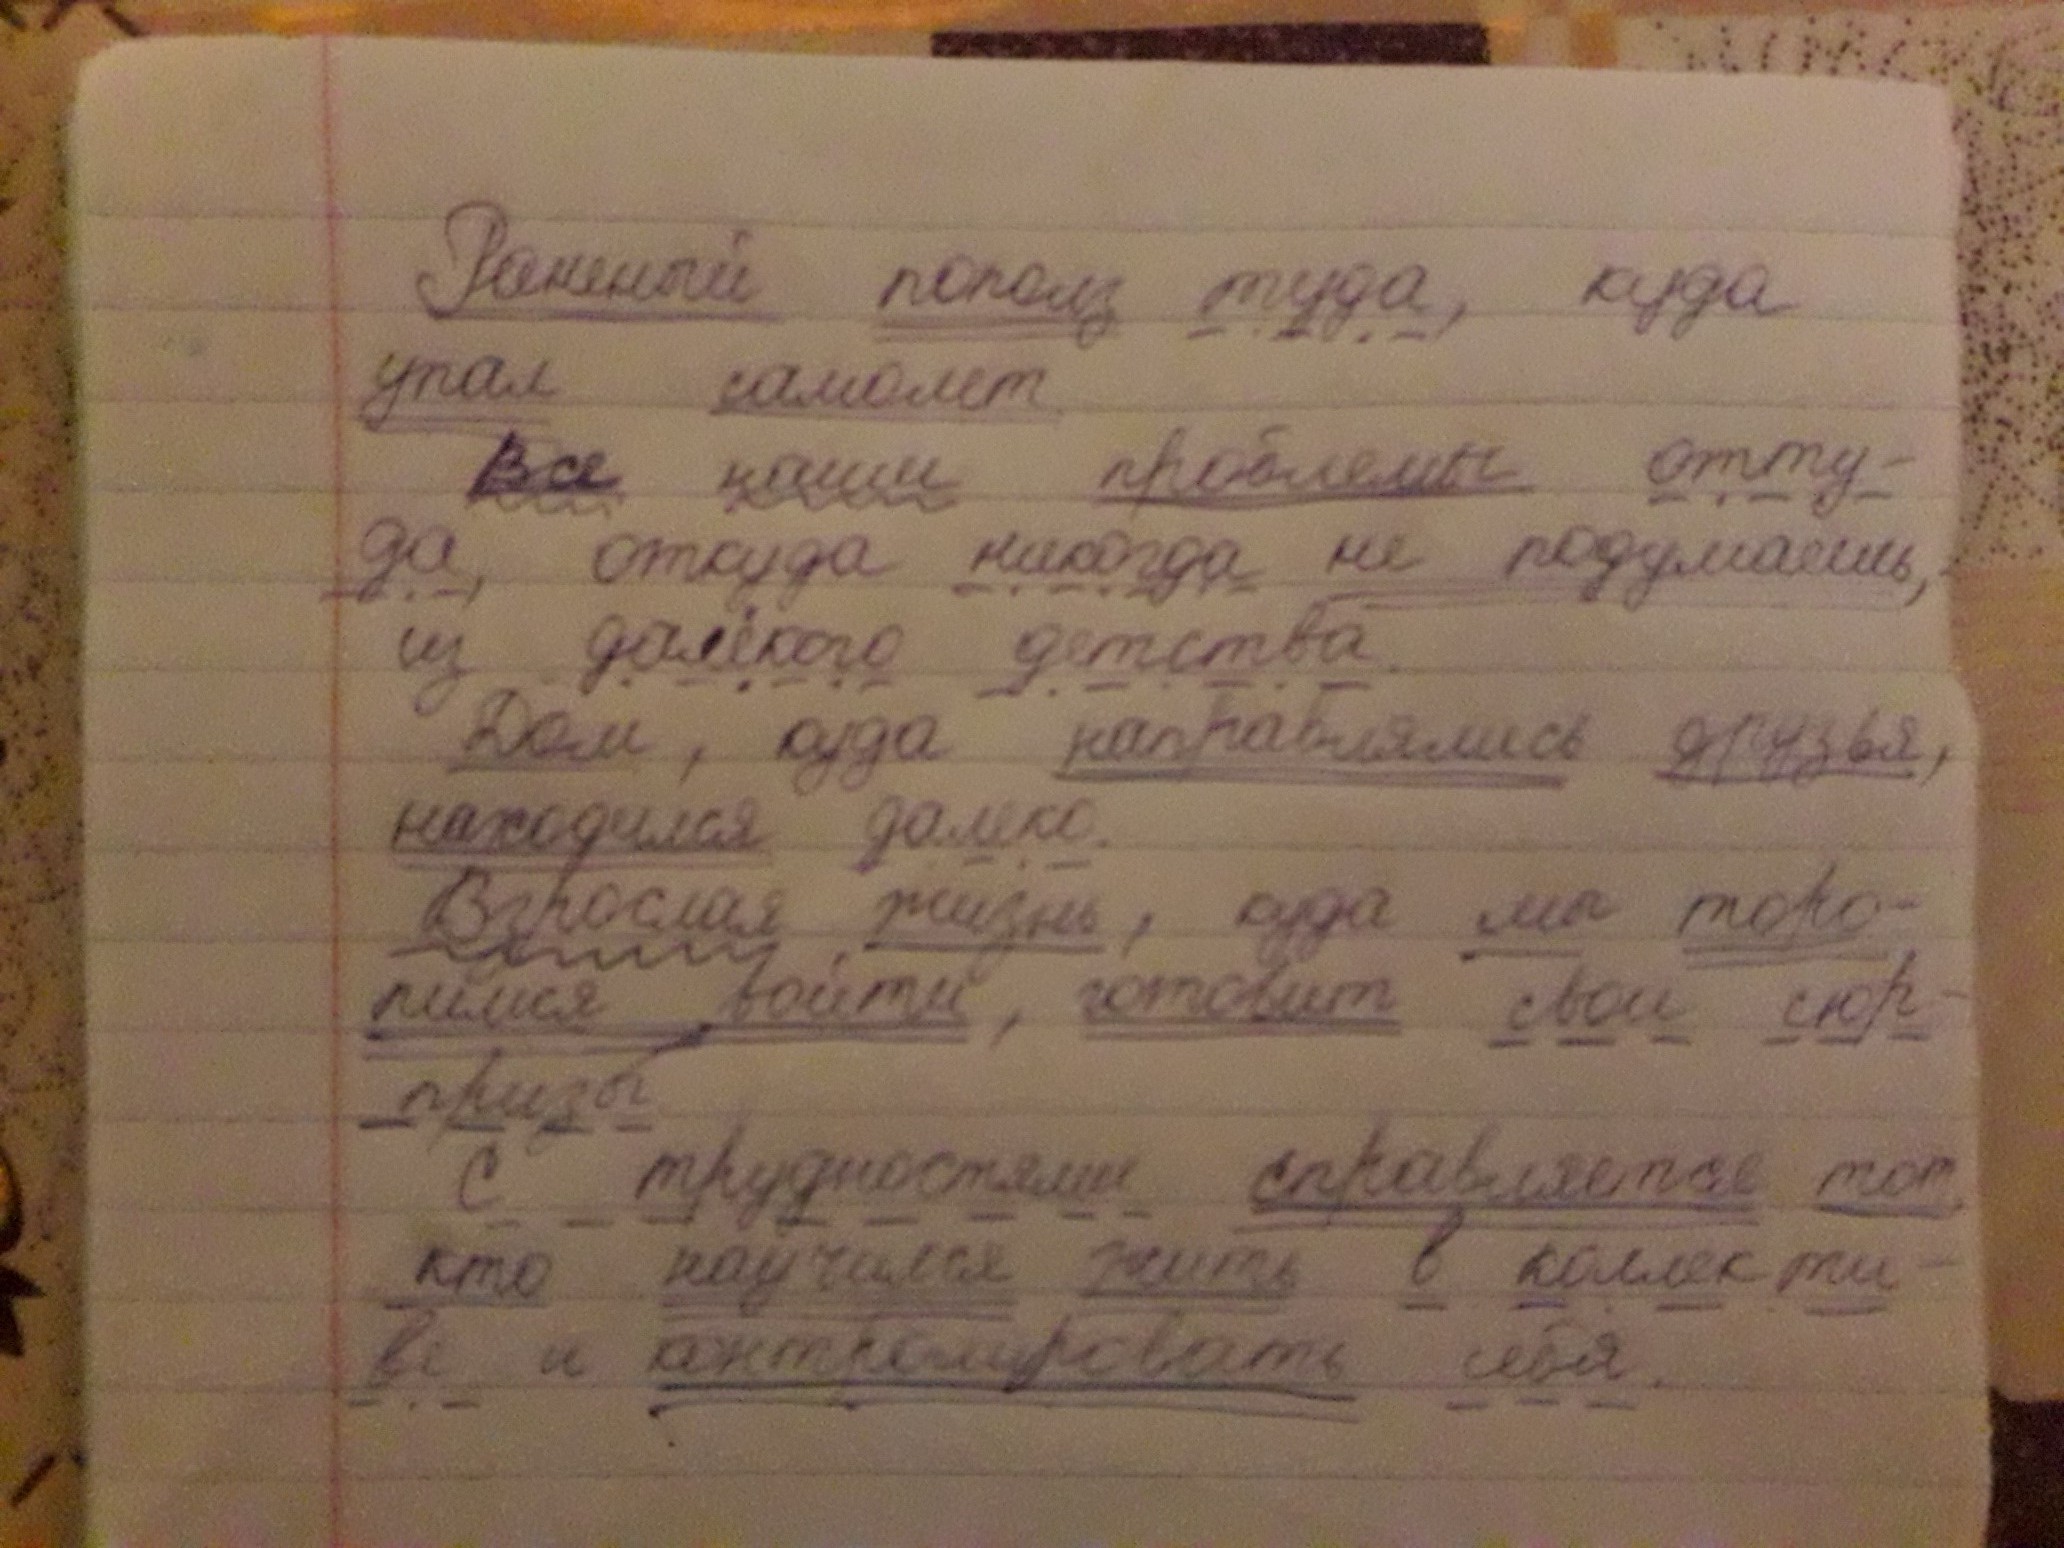 Раненый пополз туда, куда
упал самолет
Все наши проблемы отту-
да, откуда никогда не подумаешь,
из далёкого детства.
Дом, куда направлялись друзья,
находился далеко.
Взрослая жизнь, куда мы торо-
пимся войти, готовит свои сюр-
призы
С трудностями справляется тот,
кто научился жить в коллекти-
ве и контролировать себя.